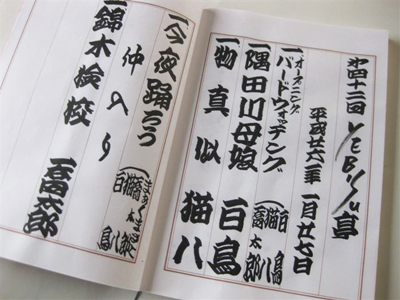 第四十二回 YEBISU亭
平成廿六年 一月廿七日
一オープニング バードウォッチング (白鳥 猫八 喬太郎)
一隅田川母娘 白鳥
一物真似 猫八
一今夜踊ろう (喬太郎 猫八 白鳥)
仲入り
一錦木検校 喬太郎